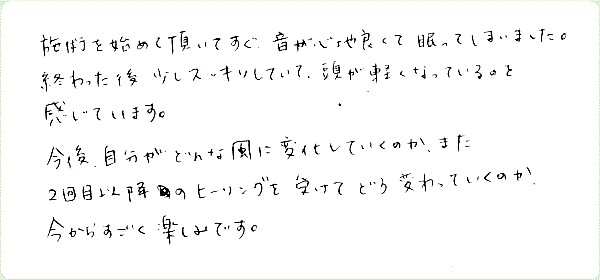 施術を始めて頂いてすぐ、音が心地良くて眠ってしまいました。
終わった後少しスッキリしていて、頭が軽くなっているのを
感じています。
今後、自分がどんな風に変化していくのか、また
2回目以降のヒーリングを受けてどう変わっていくのか、
今からすごく楽しみです。